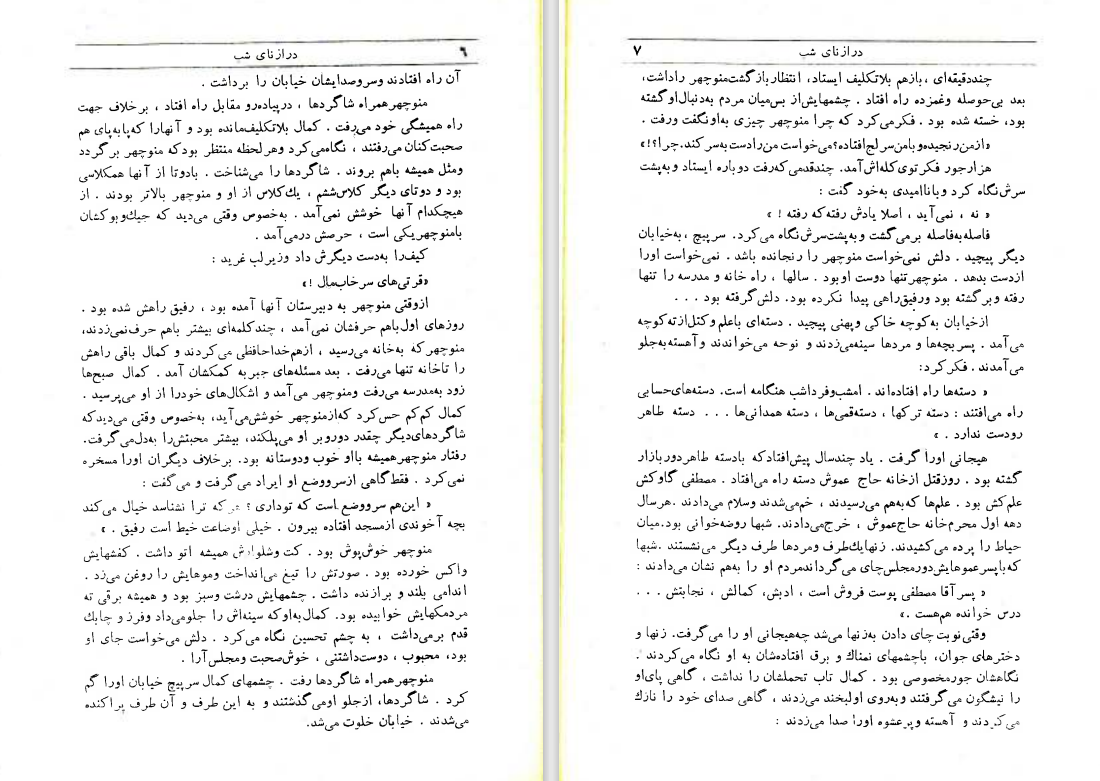 درازنای شب
٦
آن راه افتادند وسروصدایشان خیابان را برداشت .
منوچهر همراه شاگردها ، درپیاده‌رو مقابل راه افتاد ، برخلاف جهت
راه همیشگی خود می‌رفت . کمال بلاتکلیف‌مانده بود و آنهارا که‌پابه‌پای هم
صحبت‌کنان می‌رفتند ، نگاه‌می‌کرد وهرلحظه منتظر بودکه منوچهر برگردد
ومثل همیشه باهم بروند . شاگردها را می‌شناخت . بادوتا از آنها همکلاسی
بود و دوتای دیگر کلاس‌ششم ، یك‌کلاس از او و منوچهر بالاتر بودند . از
هیچکدام آنها خوشش نمی‌آمد . به‌خصوص وقتی می‌دید که جیك‌وبوکشان
بامنوچهریکی است ، حرصش درمی‌آمد .
کیف‌را به‌دست دیگرش داد وزیرلب غرید :
«قرتی‌های سرخاب‌مال !»
ازوقتی منوچهر به دبیرستان آنها آمده بود ، رفیق راهش شده بود .
روزهای اول‌باهم حرفشان نمی‌آمد ، چندکلمه‌ای بیشتر باهم حرف‌نمی‌زدند،
منوچهرکه به‌خانه می‌رسید ، ازهم‌خداحافظی می‌کردند و کمال باقی راهش
را تاخانه تنها می‌رفت . بعد مسئله‌های جبر به کمکشان آمد . کمال صبح‌ها
زود به‌مدرسه می‌رفت ومنوچهر می‌آمد و اشکال‌های خودرا از او می‌پرسید .
کمال کم‌کم حس‌کرد که‌ازمنوچهر خوشش‌می‌آید، به‌خصوص وقتی می‌دیدکه
شاگردهای‌دیگر چقدر دوروبر او می‌پلکند، بیشتر محبتش‌را به‌دل‌می‌گرفت.
رفتار منوچهرهمیشه بااو خوب ودوستانه بود. برخلاف دیگران اورا مسخره
نمی‌کرد . فقط‌گاهی ازسرووضع او ایراد می‌گرفت و می‌گفت :
« این‌هم سرووضع است که توداری ؟ هرکه ترا نشناسد خیال می‌کند
بچه آخوندی ازمسجد افتاده بیرون . خیلی اوضاعت خیط است رفیق . »
منوچهر خوش‌پوش بود . کت وشلوارش همیشه اتو داشت . کفشهایش
واکس خورده بود . صورتش را تیغ می‌انداخت وموهایش را روغن می‌زد .
اندامی بلند و برازنده داشت . چشمهایش درشت وسبز بود و همیشه برقی ته
مردمکهایش خوابیده بود. کمال‌به‌اوکه سینه‌اش را جلومی‌داد وفرز و چابك
قدم برمی‌داشت ، به چشم تحسین نگاه می‌کرد . دلش می‌خواست جای او
بود، محبوب ، دوست‌داشتنی ، خوش‌صحبت ومجلس‌آرا .
منوچهرهمراه شاگردها رفت . چشمهای کمال سرپیچ خیابان اورا گم
کرد . شاگردها، ازجلو اومی‌گذشتند و به این طرف و آن طرف پراکنده
می‌شدند . خیابان خلوت می‌شد.
درازنای شب
٧
چنددقیقه‌ای ، بازهم بلاتکلیف ایستاد، انتظار بازگشت‌منوچهر راداشت،
بعد بی‌حوصله وغمزده راه افتاد . چشمهایش‌از بس‌میان مردم به‌دنبال‌او گشته
بود، خسته شده بود . فکرمی‌کرد که چرا منوچهر چیزی به‌او نگفت ورفت .
«ازمن‌رنجیده وبامن سرلج‌افتاده؟می‌خواست من‌رادست به‌سرکند.چرا؟!»
هزارجور فکر توی کله‌اش‌آمد. چندقدمی‌که‌رفت دوباره ایستاد وبه‌پشت
سرش‌نگاه کرد وباناامیدی به‌خود گفت :
« نه ، نمی‌آید ، اصلا یادش رفته‌که رفته ! »
فاصله‌به‌فاصله برمی‌گشت وبه‌پشت‌سرش‌نگاه می‌کرد. سرپیچ ، به‌خیابان
دیگر پیچید. دلش نمی‌خواست منوچهر را رنجانده باشد . نمی‌خواست اورا
ازدست بدهد . منوچهرتنها دوست اوبود . سالها ، راه خانه و مدرسه را تنها
رفته وبرگشته بود ورفیق‌راهی پیدا نکرده بود. دلش‌گرفته بود . . .
ازخیابان به‌کوچه خاکی وپهنی پیچید . دسته‌ای باعلم وکتل‌ازته‌کوچه
می‌آمد . پسربچه‌ها و مردها سینه‌می‌زدند و نوحه می‌خواندند وآهسته‌به‌جلو
می‌آمدند . فکرکرد:
« دسته‌ها راه افتاده‌اند . امشب‌وفرداشب هنگامه است. دسته‌های‌حسابی
راه می‌افتند : دسته ترکها ، دسته‌قمی‌ها ، دسته همدانی‌ها . . . دسته طاهر
رودست ندارد . »
هیجانی اورا گرفت . یاد چندسال پیش‌افتادکه بادسته طاهردوربازار
گشته بود . روزقتل ازخانه حاج عموش دسته راه می‌افتاد . مصطفی گاوکش
علم‌کش بود . علم‌ها که‌به‌هم می‌رسیدند ، خم‌می‌شدند وسلام می‌دادند .هرسال
دهه اول محرم‌خانه حاج‌عموش ، خرج‌می‌دادند. شبها روضه‌خوانی بود.میان
حیاط را پرده می‌کشیدند. زنهایك‌طرف ومردها طرف دیگر می‌نشستند .شبها
که‌باپسرعموهایش‌دورمجلس‌چای می‌گرداندمردم او را به‌هم نشان می‌دادند :
« پسرآقا مصطفی پوست فروش است ، ادبش، کمالش ، نجابتش . . .
درس خوانده هم‌هست .»
وقتی نوبت‌چای دادن به‌زنها می‌شد چه‌هیجانی او را می‌گرفت. زنها و
دخترهای جوان، باچشمهای نمناك و برق افتاده‌شان به او نگاه می‌کردند .
نگاهشان جورمخصوصی بود . کمال تاب تحملشان را نداشت ، گاهی پای‌او
را نیشگون می‌گرفتند وبه‌روی اولبخند می‌زدند ، گاهی صدای خود را نازك
می‌کردند و آهسته وپرعشوه اورا صدا می‌زدند :